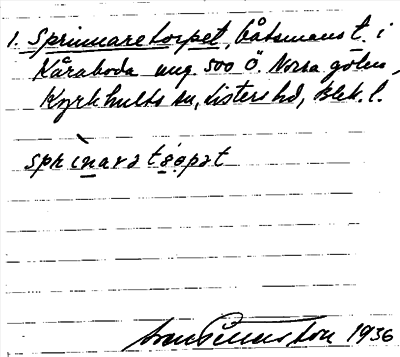 1. Sprinnaretorpet, båtsmanst. i
Kåraboda ung. 500 Ö. Norra gölen,
Kyrkhults sn, Listers hd, Blek. l.
sprìnarətöpət
1936